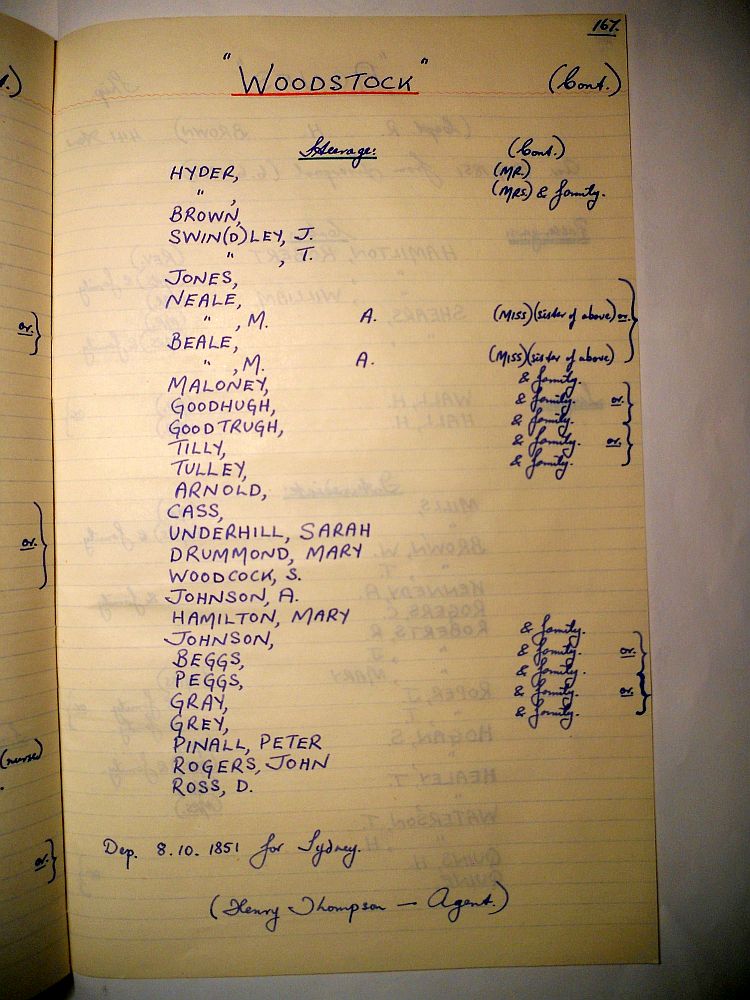 167.
"WOODSTOCK" (Cont.)
Steerage: (Cont.)
HYDER, (MR.)
" , (MRS) & family.
BROWN,
SWIN(D)LEY, J.
" , T.
JONES,
NEALE,
" , M. A. (MISS)(sister of above) or.
BEALE,
" , M. A. (MISS)(sister of above)
MALONEY, & family.
GOODHUGH, & family. or.
GOODTRUGH, & family.
TILLY, & family. or.
TULLEY, & family.
ARNOLD,
CASS,
UNDERHILL, SARAH
DRUMMOND, MARY
WOODCOCK, S.
JOHNSON, A.
HAMILTON, MARY
JOHNSON, & family.
BEGGS, & family. or.
PEGGS, & family.
GRAY, & family. or.
GREY, & family.
PINALL, PETER
ROGERS, JOHN
ROSS, D.
Dep. 8.10.1851 for Sydney.
(Henry Thompson — Agent.)
.)
or.
or.
(nurse)
or.